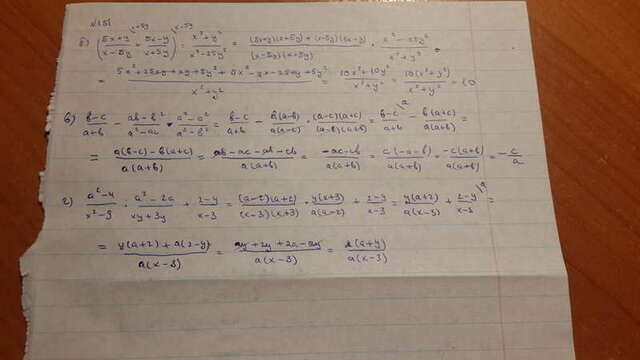 (5x+y/x-5y + 5x-y/x+5y) : x²+y²/x²-25y² = (5x+y)(x+5y)+(x-5y)(5x-y)/(x-5y)(x+5y) · x²-25y²/x²+y² =
= 5x²+25xy+xy+5y²+5x²-xy-25xy+5y²/x²+y² = 10x²+10y²/x²+y² = 10(x²+y²)/x²+y² = 10
b-c/a+b - ab-b²/a²-ac · a²-c²/a²-b² = b-c/a+b - b(a-b)/a(a-c) · (a-c)(a+c)/(a-b)(a+b) = b-c\a/a+b - b(a+c)/a(a+b) =
= a(b-c)-b(a+c)/a(a+b) = ab-ac-ab-cb/a(a+b) = -ac-cb/a(a+b) = c(-a-b)/a(a+b) = -c(a+b)/a(a+b) = -c/a
г) a²-4/x²-9 : a²-2a/xy+3y + 2-y/x-3 = (a-2)(a+2)/(x-3)(x+3) · y(x+3)/a(a-2) + 2-y/x-3 = y(a+2)/a(x-3) + 2-y\a/x-3 =
= y(a+2)+a(2-y)/a(x-3) = ay+2y+2a-ay/a(x-3) = 2(a+y)/a(x-3)